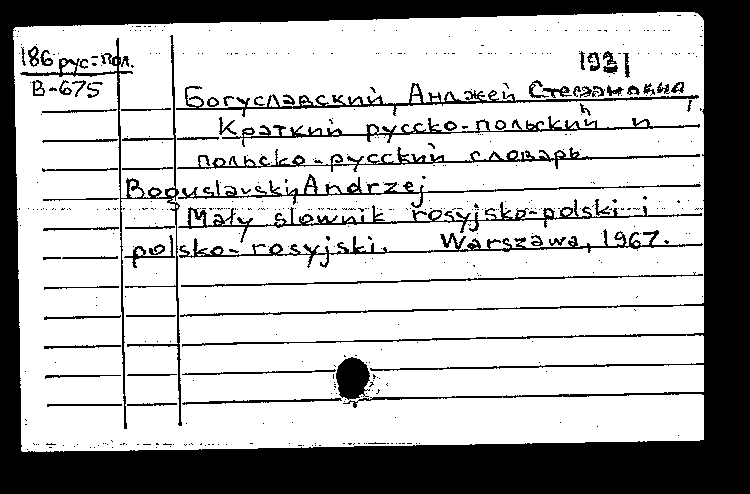 186 рус=пол.
В-675
1931
Богуславский, Анджей
Краткий русско-польский и
польско-русский словарь
Boguslavski, Andrzej
Mały słownik rosyjsko-polski i
polsko-rosyjski. Warszawa, 1967.